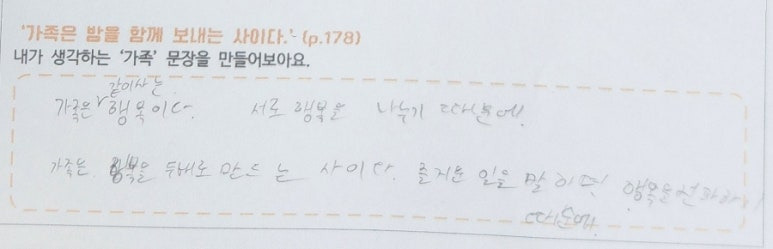 '가족은 밤을 함께 보내는 사이다.' (p.178)
내가 생각하는 '가족' 문장을 만들어보아요.
같이사는
가족은 ∨ 행복이다. 서로 행복을 나누기 때문에!
가족은 행복을 두배로 만드는 사이다. 즐거운 일을 말하면 행복을 전파하기
때문에.